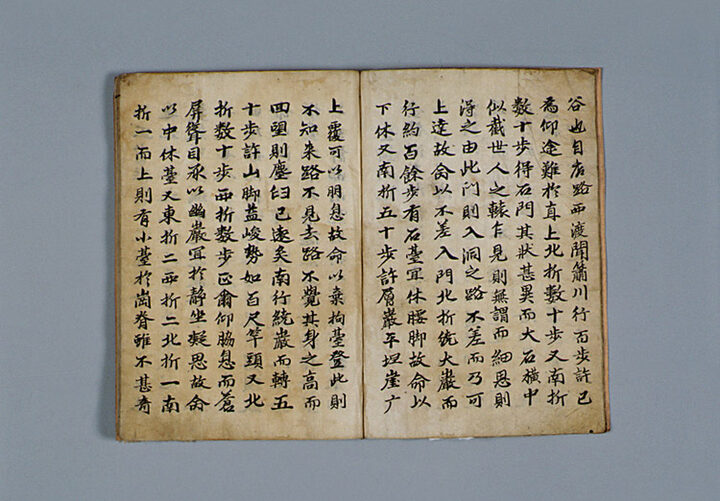 谷也自店路而渡聞簫川行百步許已
爲仰途難於直上北折數十步又南折
數十步得石門其狀甚異而大石橫中
似截世人之轅乍見則無謂而細思則
得之由此門則入洞之路不差而乃可
上達故命以不差入門北折繞大巖而
行約百餘步有石臺宜休腰脚故命以
下休又南折五十步許層巖平坦崖广
上覆可以明息故命以棄拘臺登此則
不知來路不見去路不覺其身之高而
回望則塵臼已遠矣南行繞巖而轉五
十步許山脚益峻勢如百尺竿頭又北
折數十步西折數步正翕仰脇息而蒼
屏聳目承以幽巖宜於靜坐凝思故命
以中休臺又東折二西折二北折一南
折一而上則有小臺於崗脊雖不甚奇